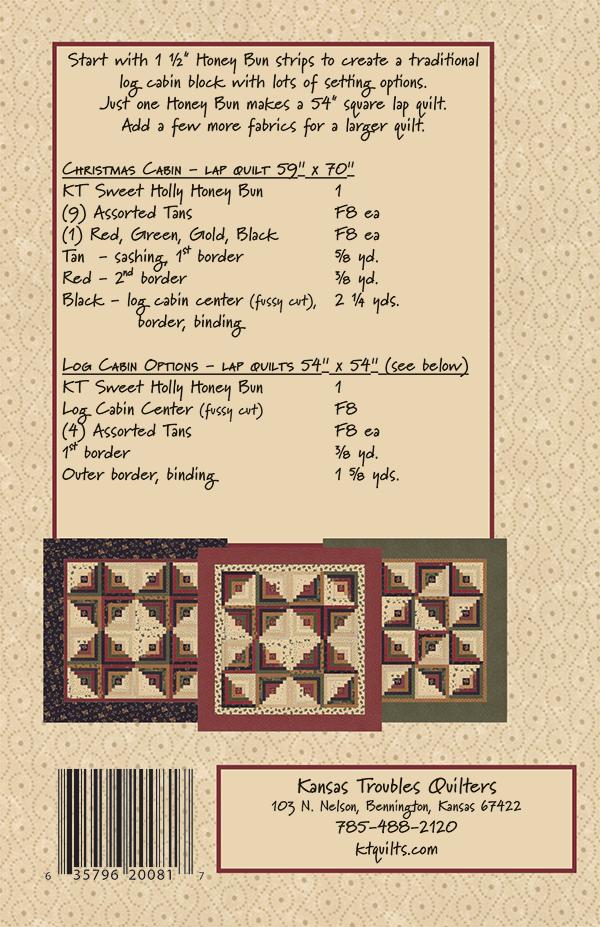 Start with 1 ½" Honey Bun strips to create a traditional
log cabin block with lots of setting options.
Just one Honey Bun makes a 54" square lap quilt.
Add a few more fabrics for a larger quilt.
Christmas Cabin – lap quilt 59" x 70"
KT Sweet Holly Honey Bun 1
(9) Assorted Tans F8 ea
(1) Red, Green, Gold, Black F8 ea
Tan – sashing, 1st border ⅝ yd.
Red – 2nd border ⅜ yd.
Black – log cabin center (fussy cut), 2 ¼ yds.
border, binding
Log Cabin Options – lap quilts 54" x 54" (see below)
KT Sweet Holly Honey Bun 1
Log Cabin Center (fussy cut) F8
(4) Assorted Tans F8 ea
1st border ⅜ yd.
Outer border, binding 1 ⅝ yds.
Kansas Troubles Quilters
103 N. Nelson, Bennington, Kansas 67422
785-488-2120
ktquilts.com
6 35796 20081 7